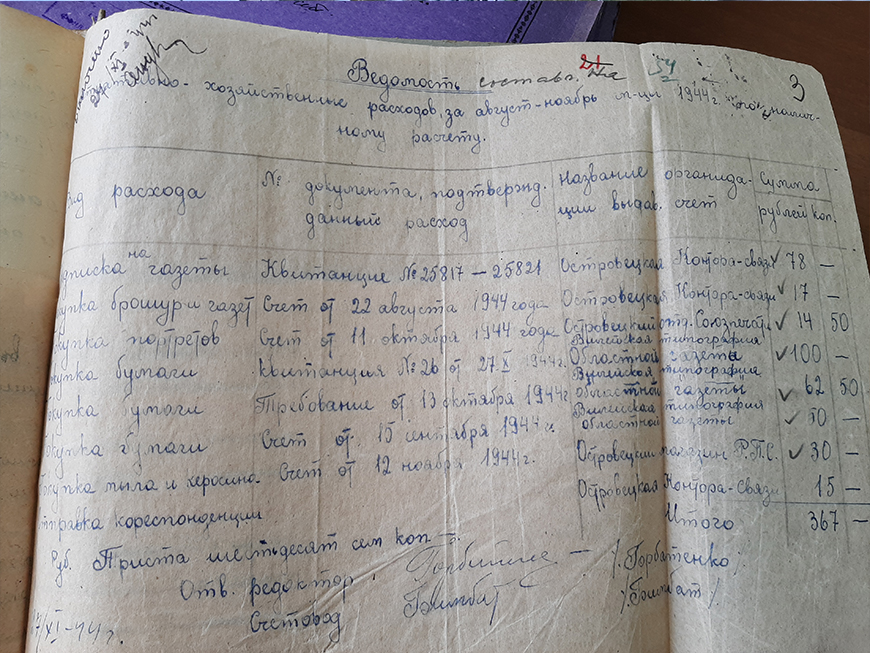 24/XI-44г.
3
21
54
Ведомость составл. на
хозяйственные расходов, за август-ноябрь м-цы 1944г. по налич-
ному расчету.
Вид расхода № документа, подтвержд. Название организа- Сумма
данный расход ции выдав. счет рублей коп.
дписка на газеты Квитанцие №25817 — 25821 Островецкая Контора-связи 78 —
купка брошур и газет Счет от 22 августа 1944 года Островецкая Контора-связи 17 —
купка портретов Счет от 11 октября 1944 года Островецкий отд. Союзпечати 14 50
купка бумаги квитанция № 26 от 27.X 1944г. Вилейская типография Областной газеты 100 —
окупка бумаги Требование от 13 октября 1944г. Вилейская типография областной газеты 62 50
окупка бумаги Счет от 15 сентября 1944 г. Вилейская типография областной газеты 50 —
окупка мыла и керосина Счет от 12 ноября 1944г. Островецкий магазин Р.П.С. 30 —
тправка кореспонденции Островецкая Контора-связи 15 —
Итого 367 —
Руб. Триста шестьдесят сем коп —
Отв. редоктор /Горбатенко/
Счетовод /Бимбат/
17/XI-44г.